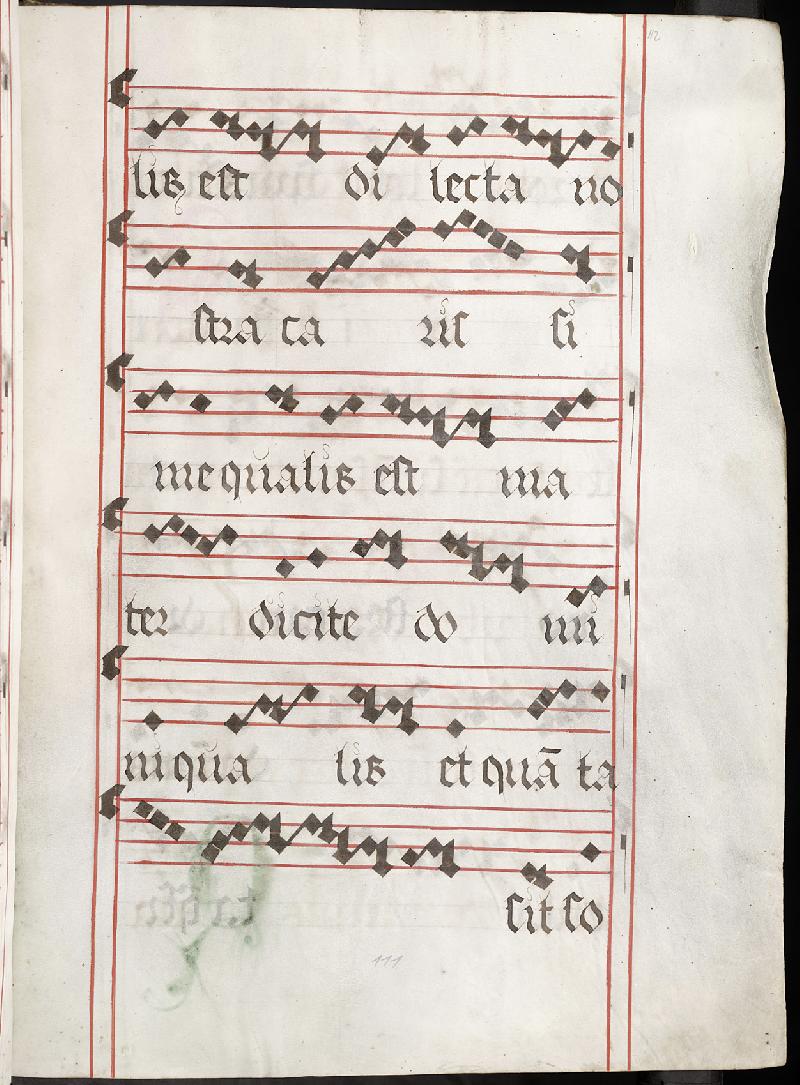 112
lis est di lecta no
stra ca ris si
me qualis est ma
ter dicite do mi
ni qua lis et quā ta
sit so
111